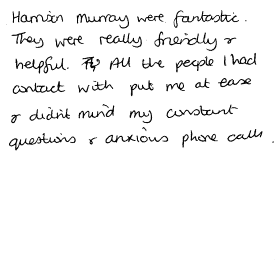 Harrison Murray were fantastic.
They were really friendly &
helpful. All the people I had
contact with put me at ease
& didn't mind my constant
questions & anxious phone calls.